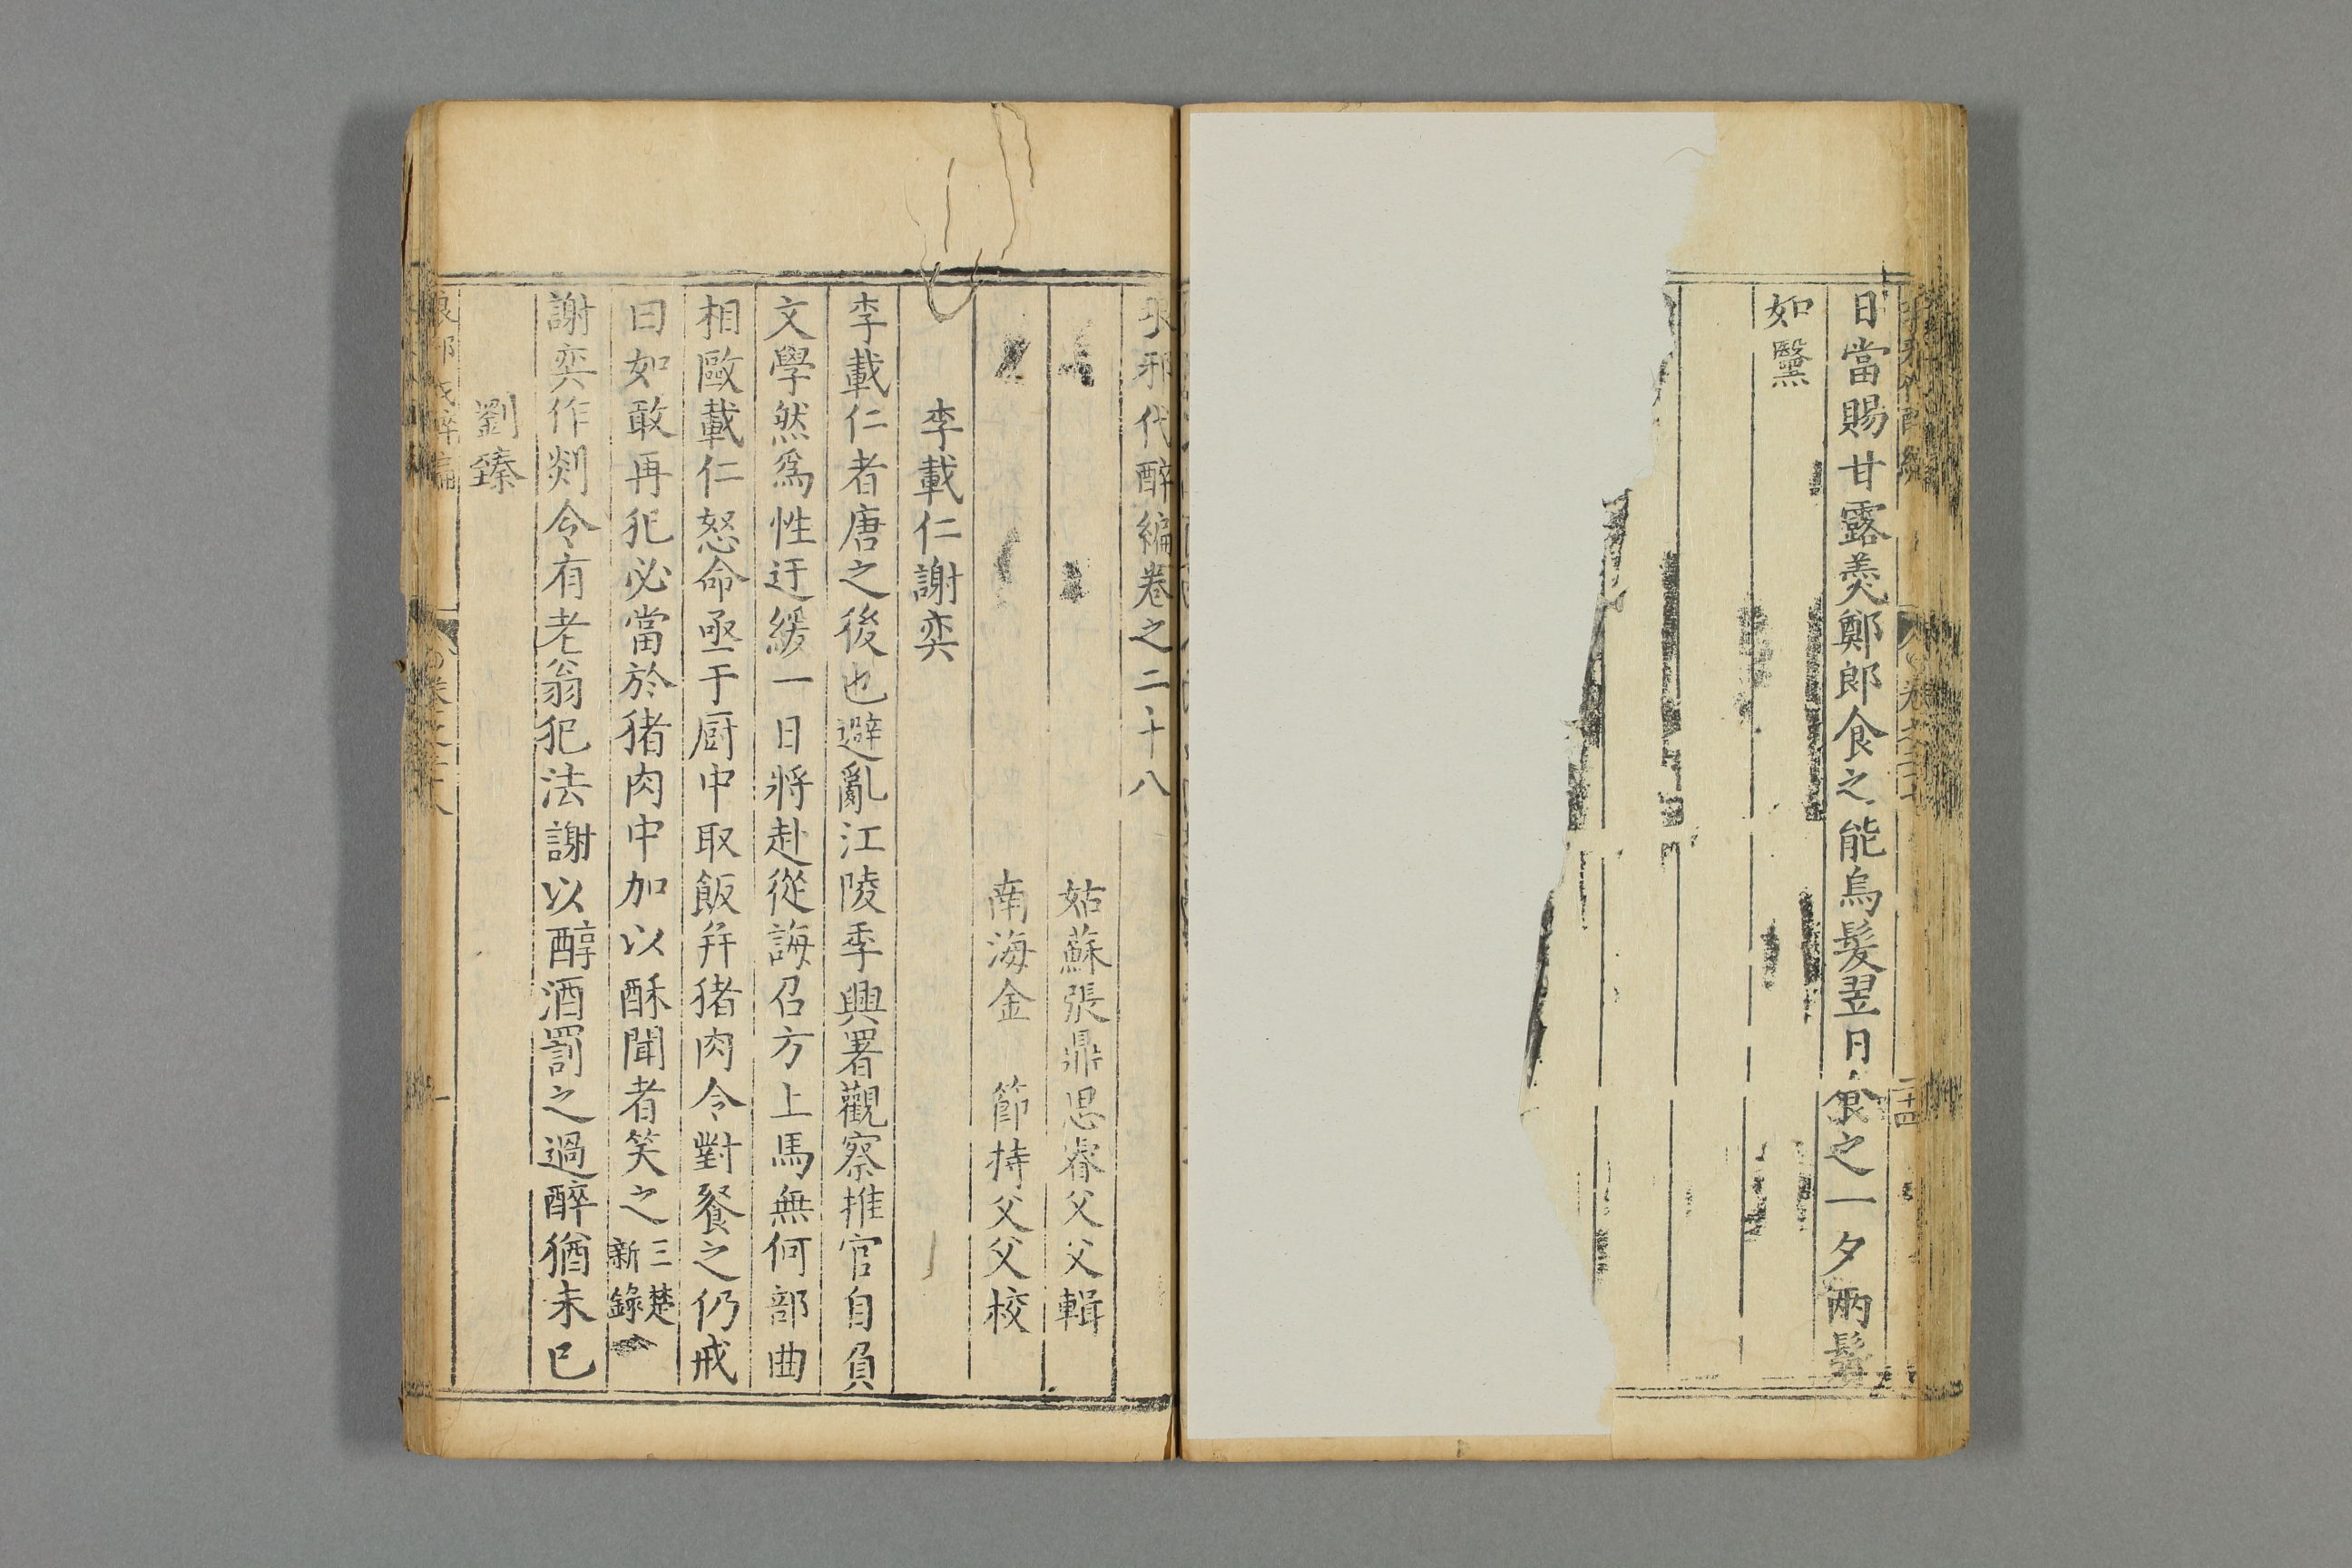 日當賜甘露羹鄭郎食之能烏髮翌日食之一夕兩鬢
如黳
琅邪代醉編卷之二十八
姑蘇張鼎思睿父父輯
南海金節持父父校
李載仁謝奕
李載仁者唐之後也避亂江陵季興署觀察推官自負
文學然爲性迂緩一日將赴從誨召方上馬無何部曲
相歐載仁怒命亟于厨中取飯并猪肉令對餐之仍戒
曰如敢再犯必當於猪肉中加以酥聞者笑之三楚新錄
謝奕作剡令有老翁犯法謝以醇酒罰之過醉猶未已
劉臻